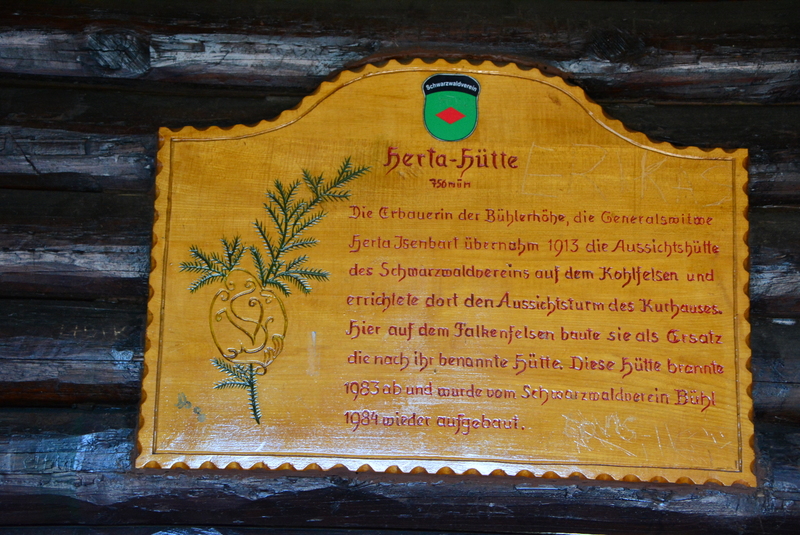 Schwarzwaldverein
Herta-Hütte
750 m ü.n
Die Erbauerin der Bühlerhöhe, die Generalswitwe
Herta Isenbart übernahm 1913 die Aussichtshütte
des Schwarzwaldvereins auf dem Kohlfelsen und
errichtete dort den Aussichtsturm des Kurhauses.
Hier auf dem Falkenfelsen baute sie als Ersatz
die nach ihr benannte Hütte. Diese Hütte brannte
1983 ab und wurde vom Schwarzwaldverein Bühl
1984 wieder aufgebaut.